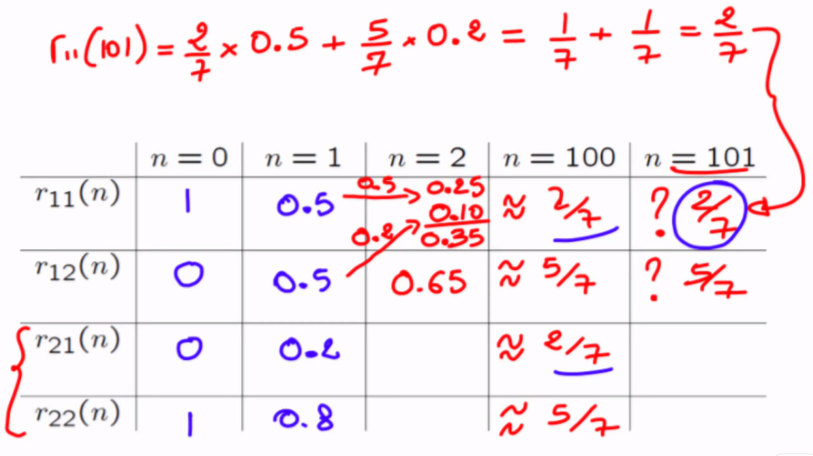 r₁₁(101) = 2/7 × 0.5 + 5/7 × 0.2 = 1/7 + 1/7 = 2/7
n = 0 n = 1 n = 2 n = 100 n = 101
r₁₁(n) 1 0.5 0.5 0.25 ≈ 2/7 ? 2/7
0.10
0.2 0.35
r₁₂(n) 0 0.5 0.65 ≈ 5/7 ? 5/7
r₂₁(n) 0 0.2 ≈ 2/7
r₂₂(n) 1 0.8 ≈ 5/7